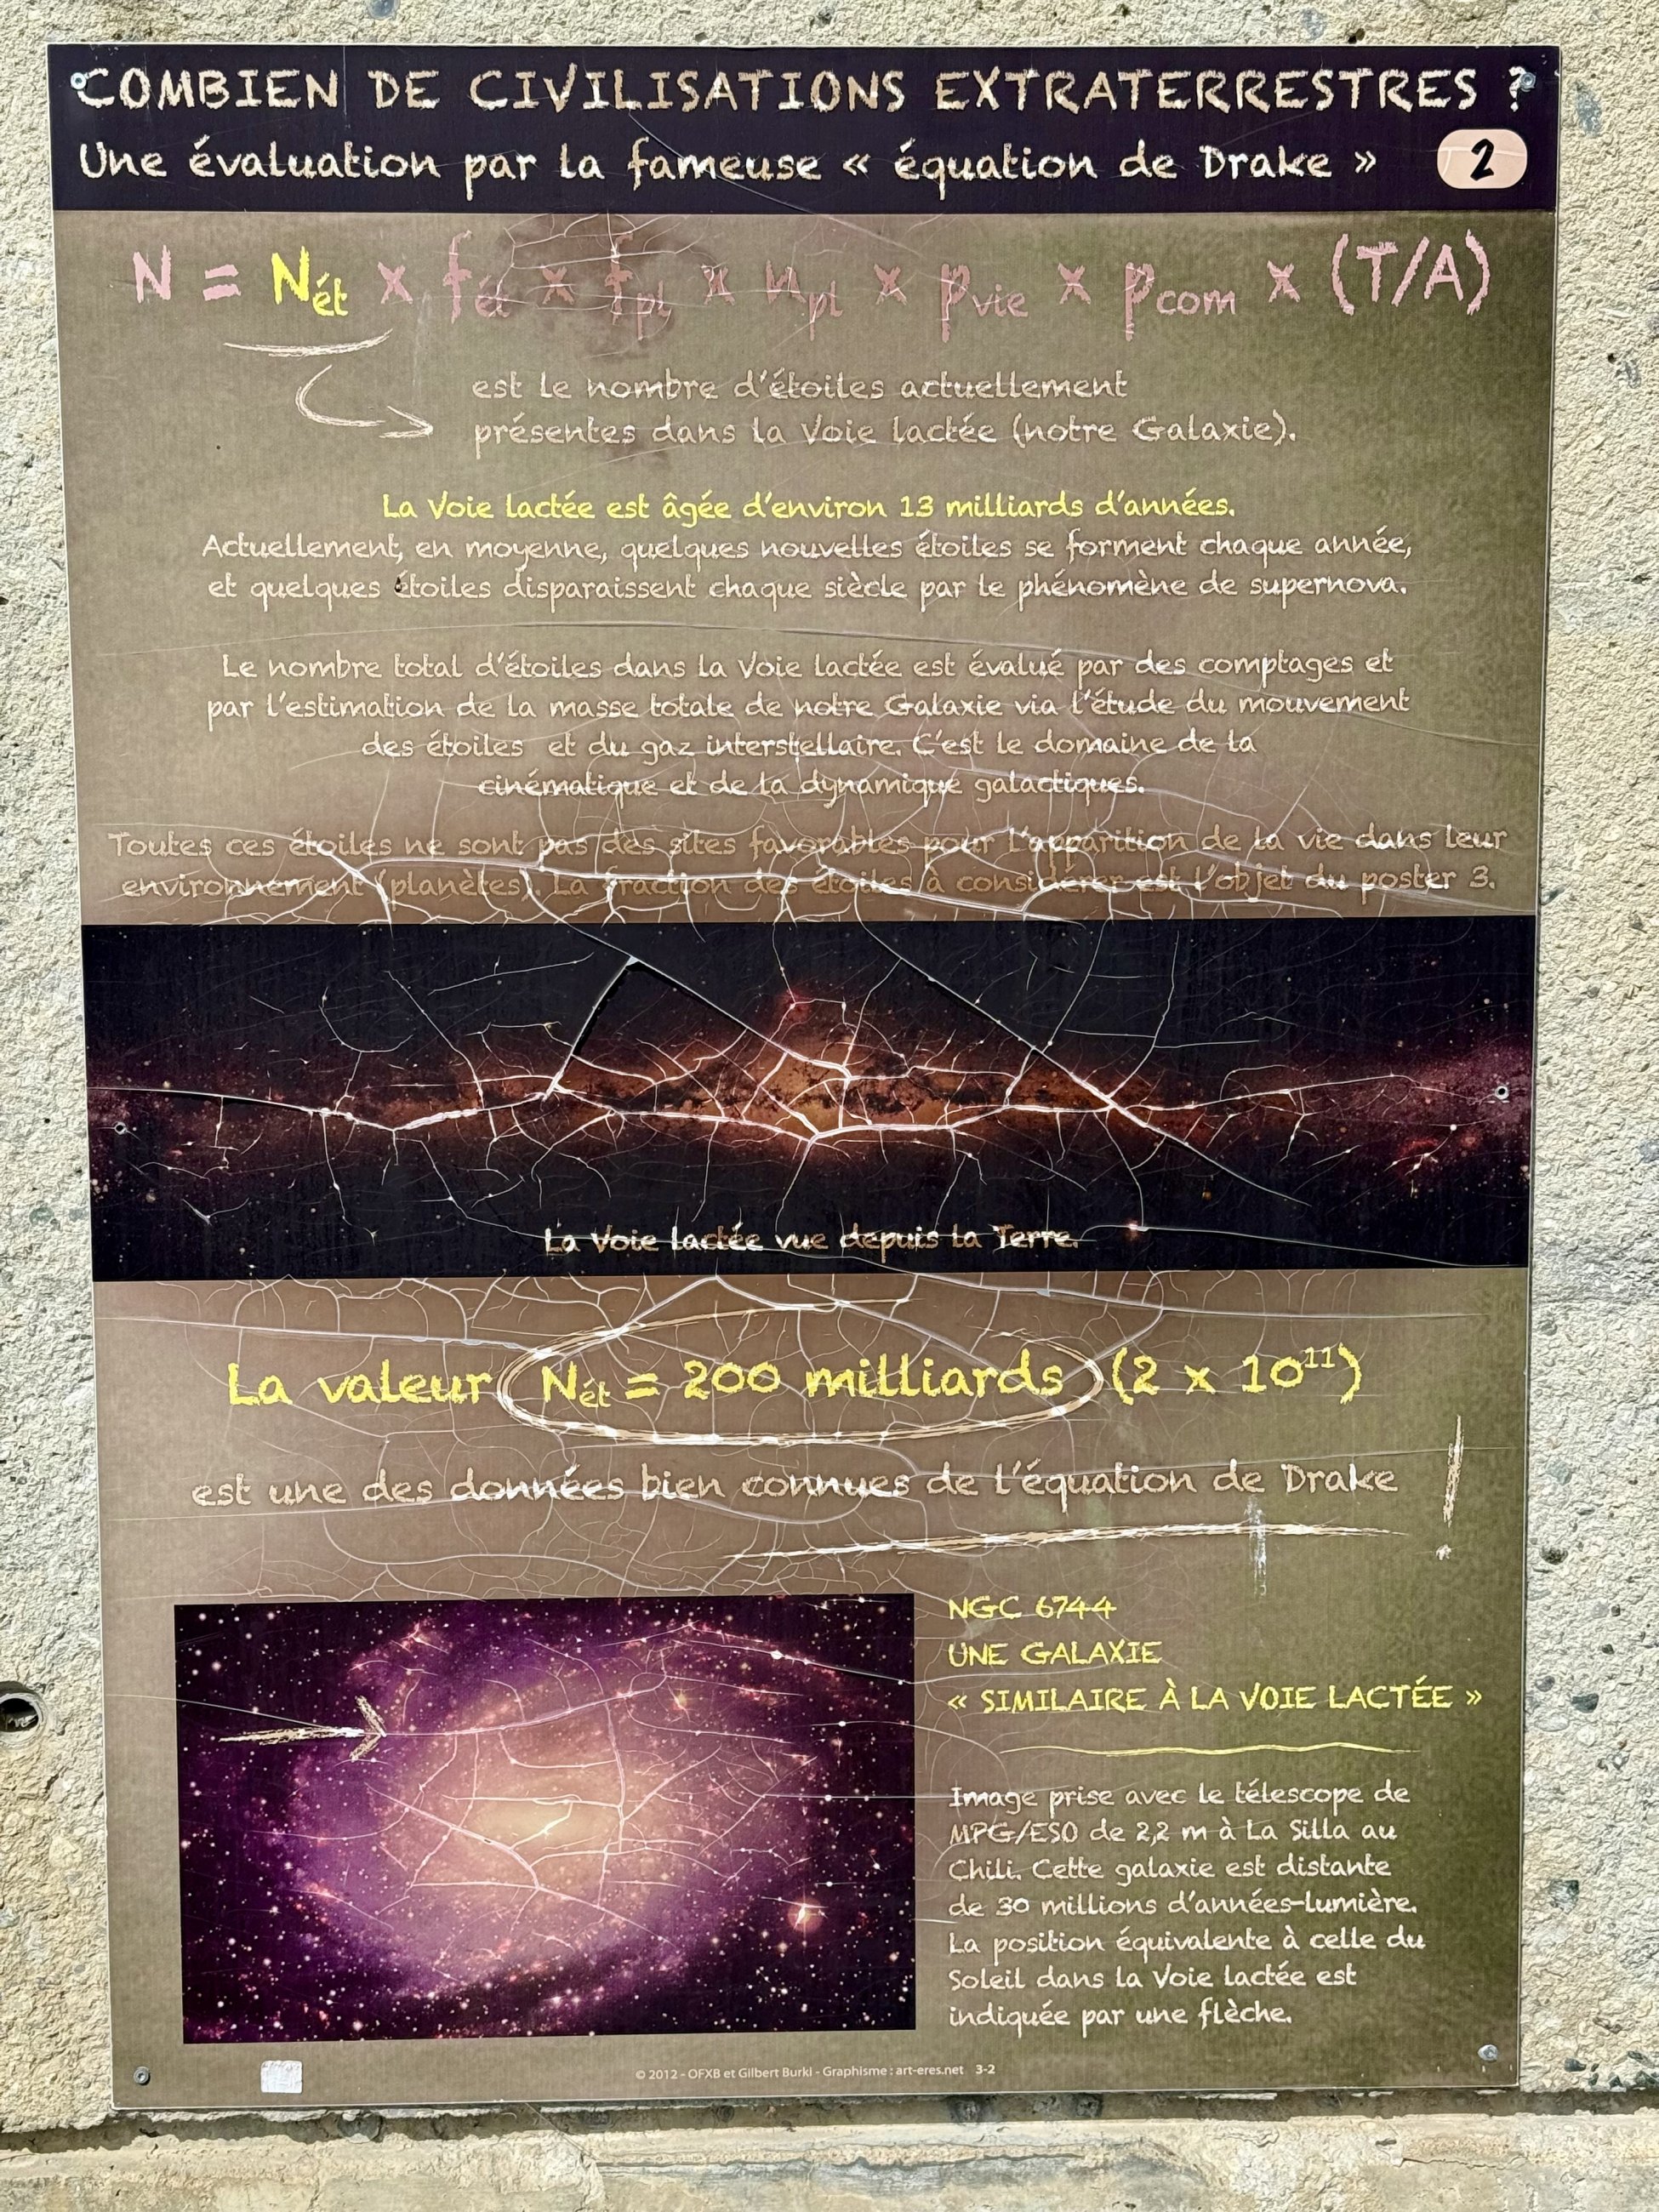 COMBIEN DE CIVILISATIONS EXTRATERRESTRES ?
Une évaluation par la fameuse « équation de Drake »
2
N = Nét x fét x fpl x npl x pvie x pcom x (T/A)
est le nombre d'étoiles actuellement
présentes dans la Voie lactée (notre Galaxie).
La Voie lactée est âgée d'environ 13 milliards d'années.
Actuellement, en moyenne, quelques nouvelles étoiles se forment chaque année,
et quelques étoiles disparaissent chaque siècle par le phénomène de supernova.
Le nombre total d'étoiles dans la Voie lactée est évalué par des comptages et
par l'estimation de la masse totale de notre Galaxie via l'étude du mouvement
des étoiles et du gaz interstellaire. C'est le domaine de la
cinématique et de la dynamique galactiques.
Toutes ces étoiles ne sont pas des sites favorables pour l'apparition de la vie dans leur
environnement (planètes). La fraction des étoiles à considérer est l'objet du poster 3.
La Voie lactée vue depuis la Terre.
La valeur Nét = 200 milliards (2 x 10¹¹)
est une des données bien connues de l'équation de Drake !
NGC 6744
UNE GALAXIE
« SIMILAIRE À LA VOIE LACTÉE »
Image prise avec le télescope de
MPG/ESO de 2,2 m à La Silla au
Chili. Cette galaxie est distante
de 30 millions d'années-lumière.
La position équivalente à celle du
Soleil dans la Voie lactée est
indiquée par une flèche.
© 2012 - OFXB et Gilbert Burki - Graphisme : art-eres.net 3-2